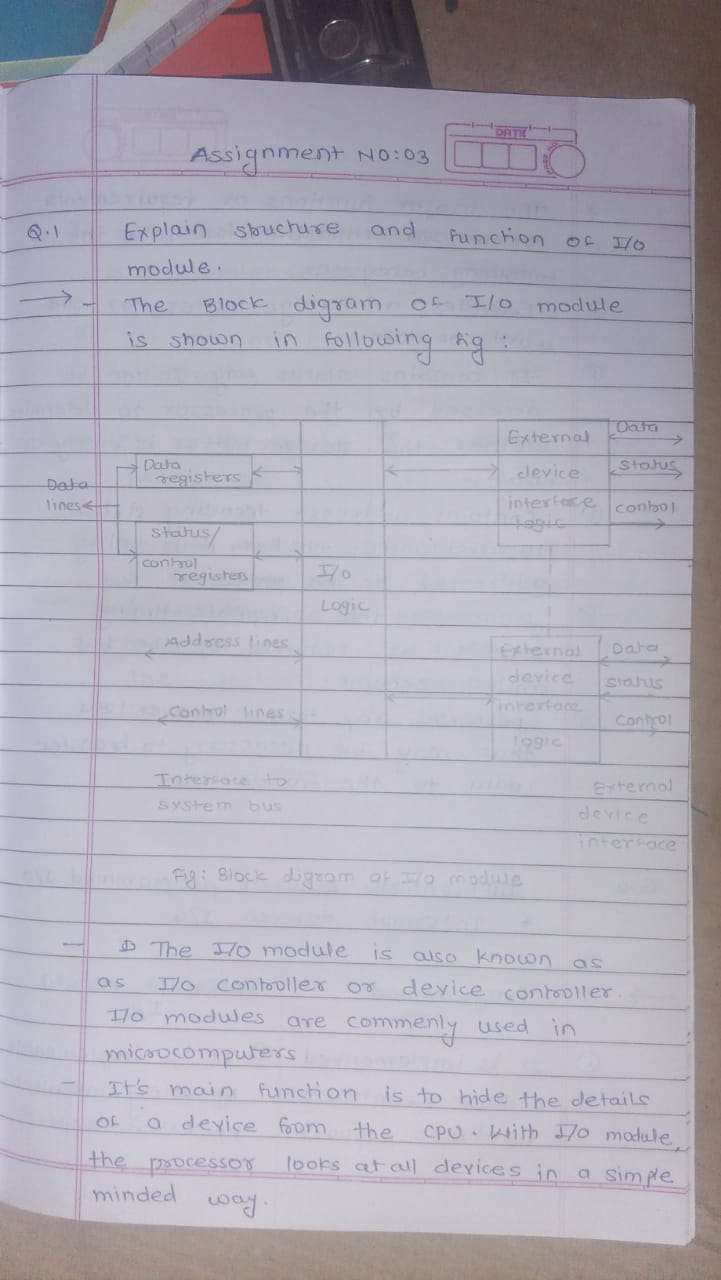 DATE
Assignment NO:03
Q.1 Explain stucture and function of I/O
module.
→ - The Block digram of I/O module
is shown in following fig :
Data
registers
Data
lines
status/
control
registers
Address lines
Control lines
I/O
Logic
External
device
interface
logic
Data
status
control
External
device
interface
logic
Data
status
control
Interface to
system bus
External
device
interface
Fig: Block digram of I/O module
- ① The I/O module is also known as
as I/O controller or device controller.
I/O modules are commenly used in
microcomputers
- It's main function is to hide the details
of a device from the CPU. With I/O module,
the processor looks at all devices in a simple
minded way.